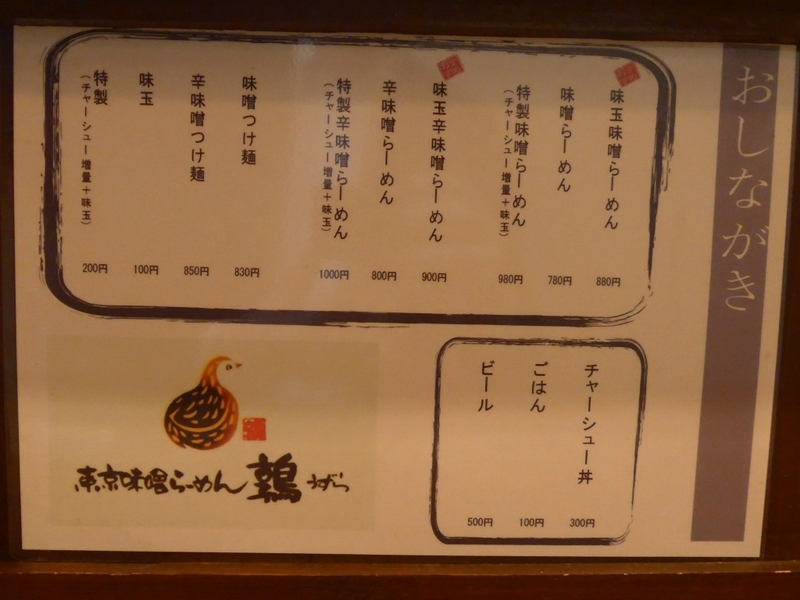 おしながき
味玉味噌らーめん 880円
味噌らーめん 780円
特製味噌らーめん 980円
(チャーシュー増量+味玉)
味玉辛味噌らーめん 900円
辛味噌らーめん 800円
特製辛味噌らーめん 1000円
(チャーシュー増量+味玉)
味噌つけ麺 830円
辛味噌つけ麺 850円
味玉 100円
特製 200円
(チャーシュー増量+味玉)
チャーシュー丼 300円
ごはん 100円
ビール 500円
東京味噌らーめん 鶉 うずら